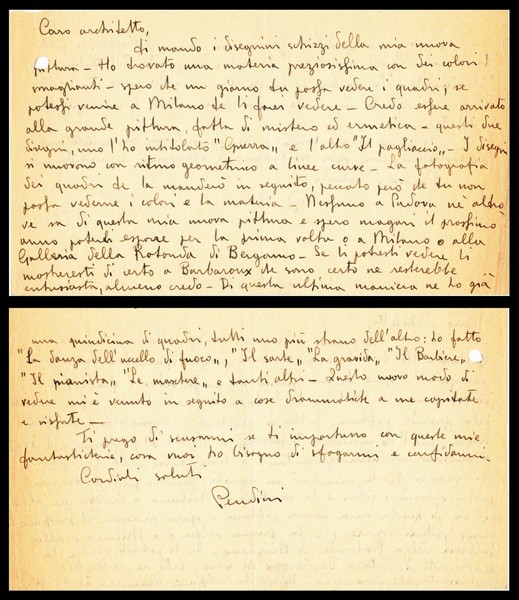 Caro architetto,
ti mando i disegnini schizzi della mia nuova
pittura - Ho trovato una materia preziosissima con dei colori
smaglianti - spero che un giorno tu possa vedere i quadri; se
potessi venire a Milano te li farei vedere - Credo essere arrivato
alla grande pittura, fatta di mistero ed ermetica - questi due
disegni, uno l'ho intitolato "Guerra" e l'altro "Il pagliaccio" - I disegni
si muovono con ritmo geometrico a linee curve - La fotografia
dei quadri te la manderò in seguito, peccato però che tu non
possa vederne i colori e la materia - Nessuno a Padova né altrove
sa di questa mia nuova pittura e spero magari il prossimo
anno poterli esporre per la prima volta o a Milano o alla
Galleria della Rotonda di Bergamo - Se li potesti vedere li
mostreresti di certo a Barbaroux che sono certo ne resterebbe
entusiasta, almeno credo - Di questa ultima maniera ne ho già
una quindicina di quadri, tutti uno più strano dell'altro: ho fatto
"La danza dell'uccello di fuoco", "Il sarto", "La gravida", "Il Barbiere",
"Il pianista", "Le maschere" e tanti altri - Questo nuovo modo di
vedere mi è venuto in seguito a cose drammatiche a me capitate
e risapute -
Ti prego di scusarmi se ti importuno con queste mie
fantasticherie, cosa vuoi ho bisogno di sfogarmi e confidarmi -
Cordiali saluti
Pendini